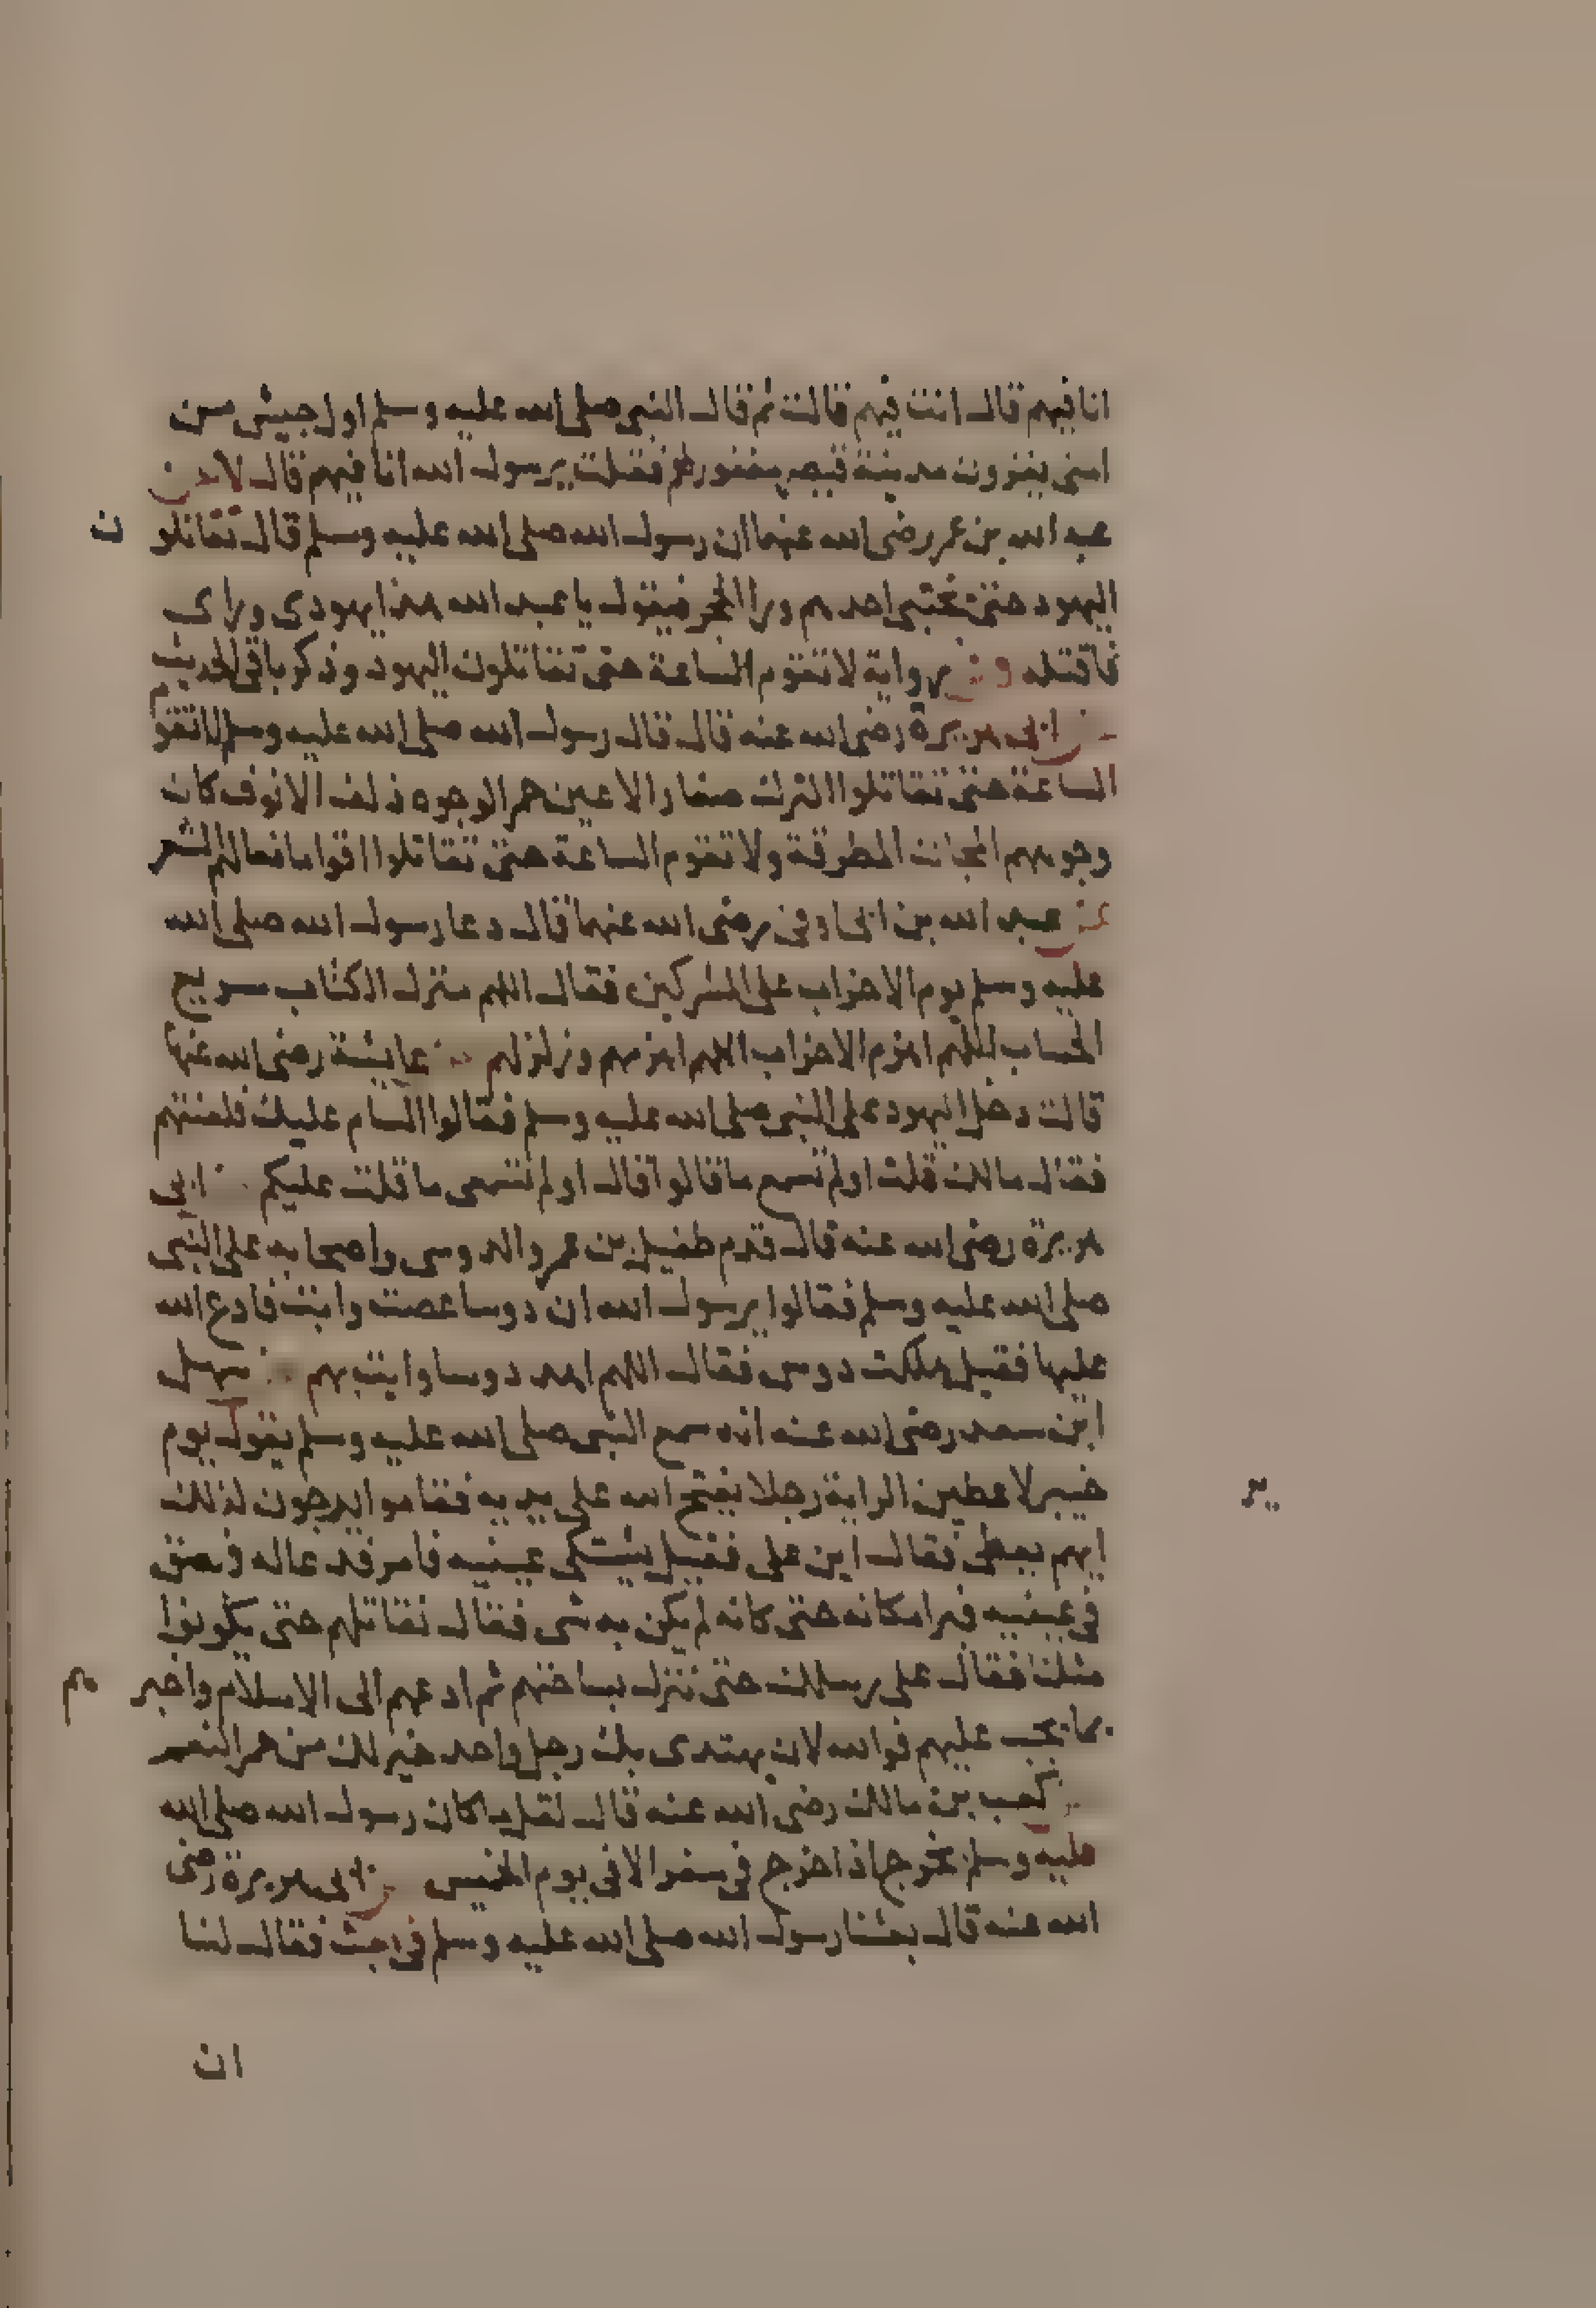 انا فيهم قال انت فيهم قالت ثم قال النبي صلى الله عليه وسلم اول جيش من
امتي يغزون مدينة قيصر مغفور لهم فقلت يرسول الله انا فيهم قال لا عن
عبد الله بن عمر رضى الله عنهما ان رسول الله صلى الله عليه وسلم قال تقاتلو
ن
اليهود حتى يختبى احدهم ورا الحجر فيقول يا عبد الله هذا يهودى وراى
فاقتله وفي رواية لا تقوم الساعة حتى تقاتلون اليهود وذكر باقي الحديث
عن ابي هريرة رضى الله عنه قال قال رسول الله صلى الله عليه وسلم لا تقو
م
الساعة حتى تقاتلوا الترك صغار الاعين حمر الوجوه ذلف الانوف كان
وجوههم المجان المطرقة ولا تقوم الساعة حتى تقاتلوا اقواما نعالهم الشعر
عن عبد الله بن ابي اوفى رضى الله عنهما قال دعا رسول الله صلى الله
عليه وسلم يوم الاحزاب على المشركين فقال اللهم منزل الكتاب سريع
الحساب اللهم اهزم الاحزاب اللهم اهزمهم وزلزلهم عن عايشة رضى الله عنها
قالت دخل اليهود على النبي صلى الله عليه وسلم فقالوا السام عليك فلعنتهم
فقال مالك قلت اولم تسمع ما قالوا قال اولم تسمعى ما قلت عليكم عن ابي
هريرة رضى الله عنه قال قدم طفيل بن عمرو الدوسى واصحابه على النبي
صلى الله عليه وسلم فقالوا يرسول الله ان دوسا عصت وابت فادع الله
عليها فقيل هلكت دوس فقال اللهم اهد دوسا وايت بهم عن سهل
ابن سعد رضى الله عنه انه سمع النبي صلى الله عليه وسلم يقول يوم
خيبر لاعطين الراية رجلا يفتح الله على يديه فقاموا يرجون لذلك
ايهم يعطى فقال اين على فقيل يشتكى عينيه فامر فدعا له فبصق
في عينيه فبرا مكانه حتى كانه لم يكن به شى فقال نقاتلهم حتى يكونوا
مثلنا فقال على رسلك حتى تنزل بساحتهم ثم ادعهم الى الاسلام واخبر
هم
بما يجب عليهم فوالله لان يهتدى بك رجل واحد خير لك من حمر النعم
عن كعب بن مالك رضى الله عنه قال لقل ما كان رسول الله صلى الله
عليه وسلم يخرج اذا خرج في سفر الا في يوم الخميس عن ابي هريرة رضى
الله عنه قال بعثنا رسول الله صلى الله عليه وسلم في بعث فقال لنا
ان